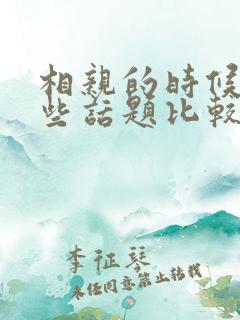 相親的時候
些話題比較
李征琴
未经同意禁止转载